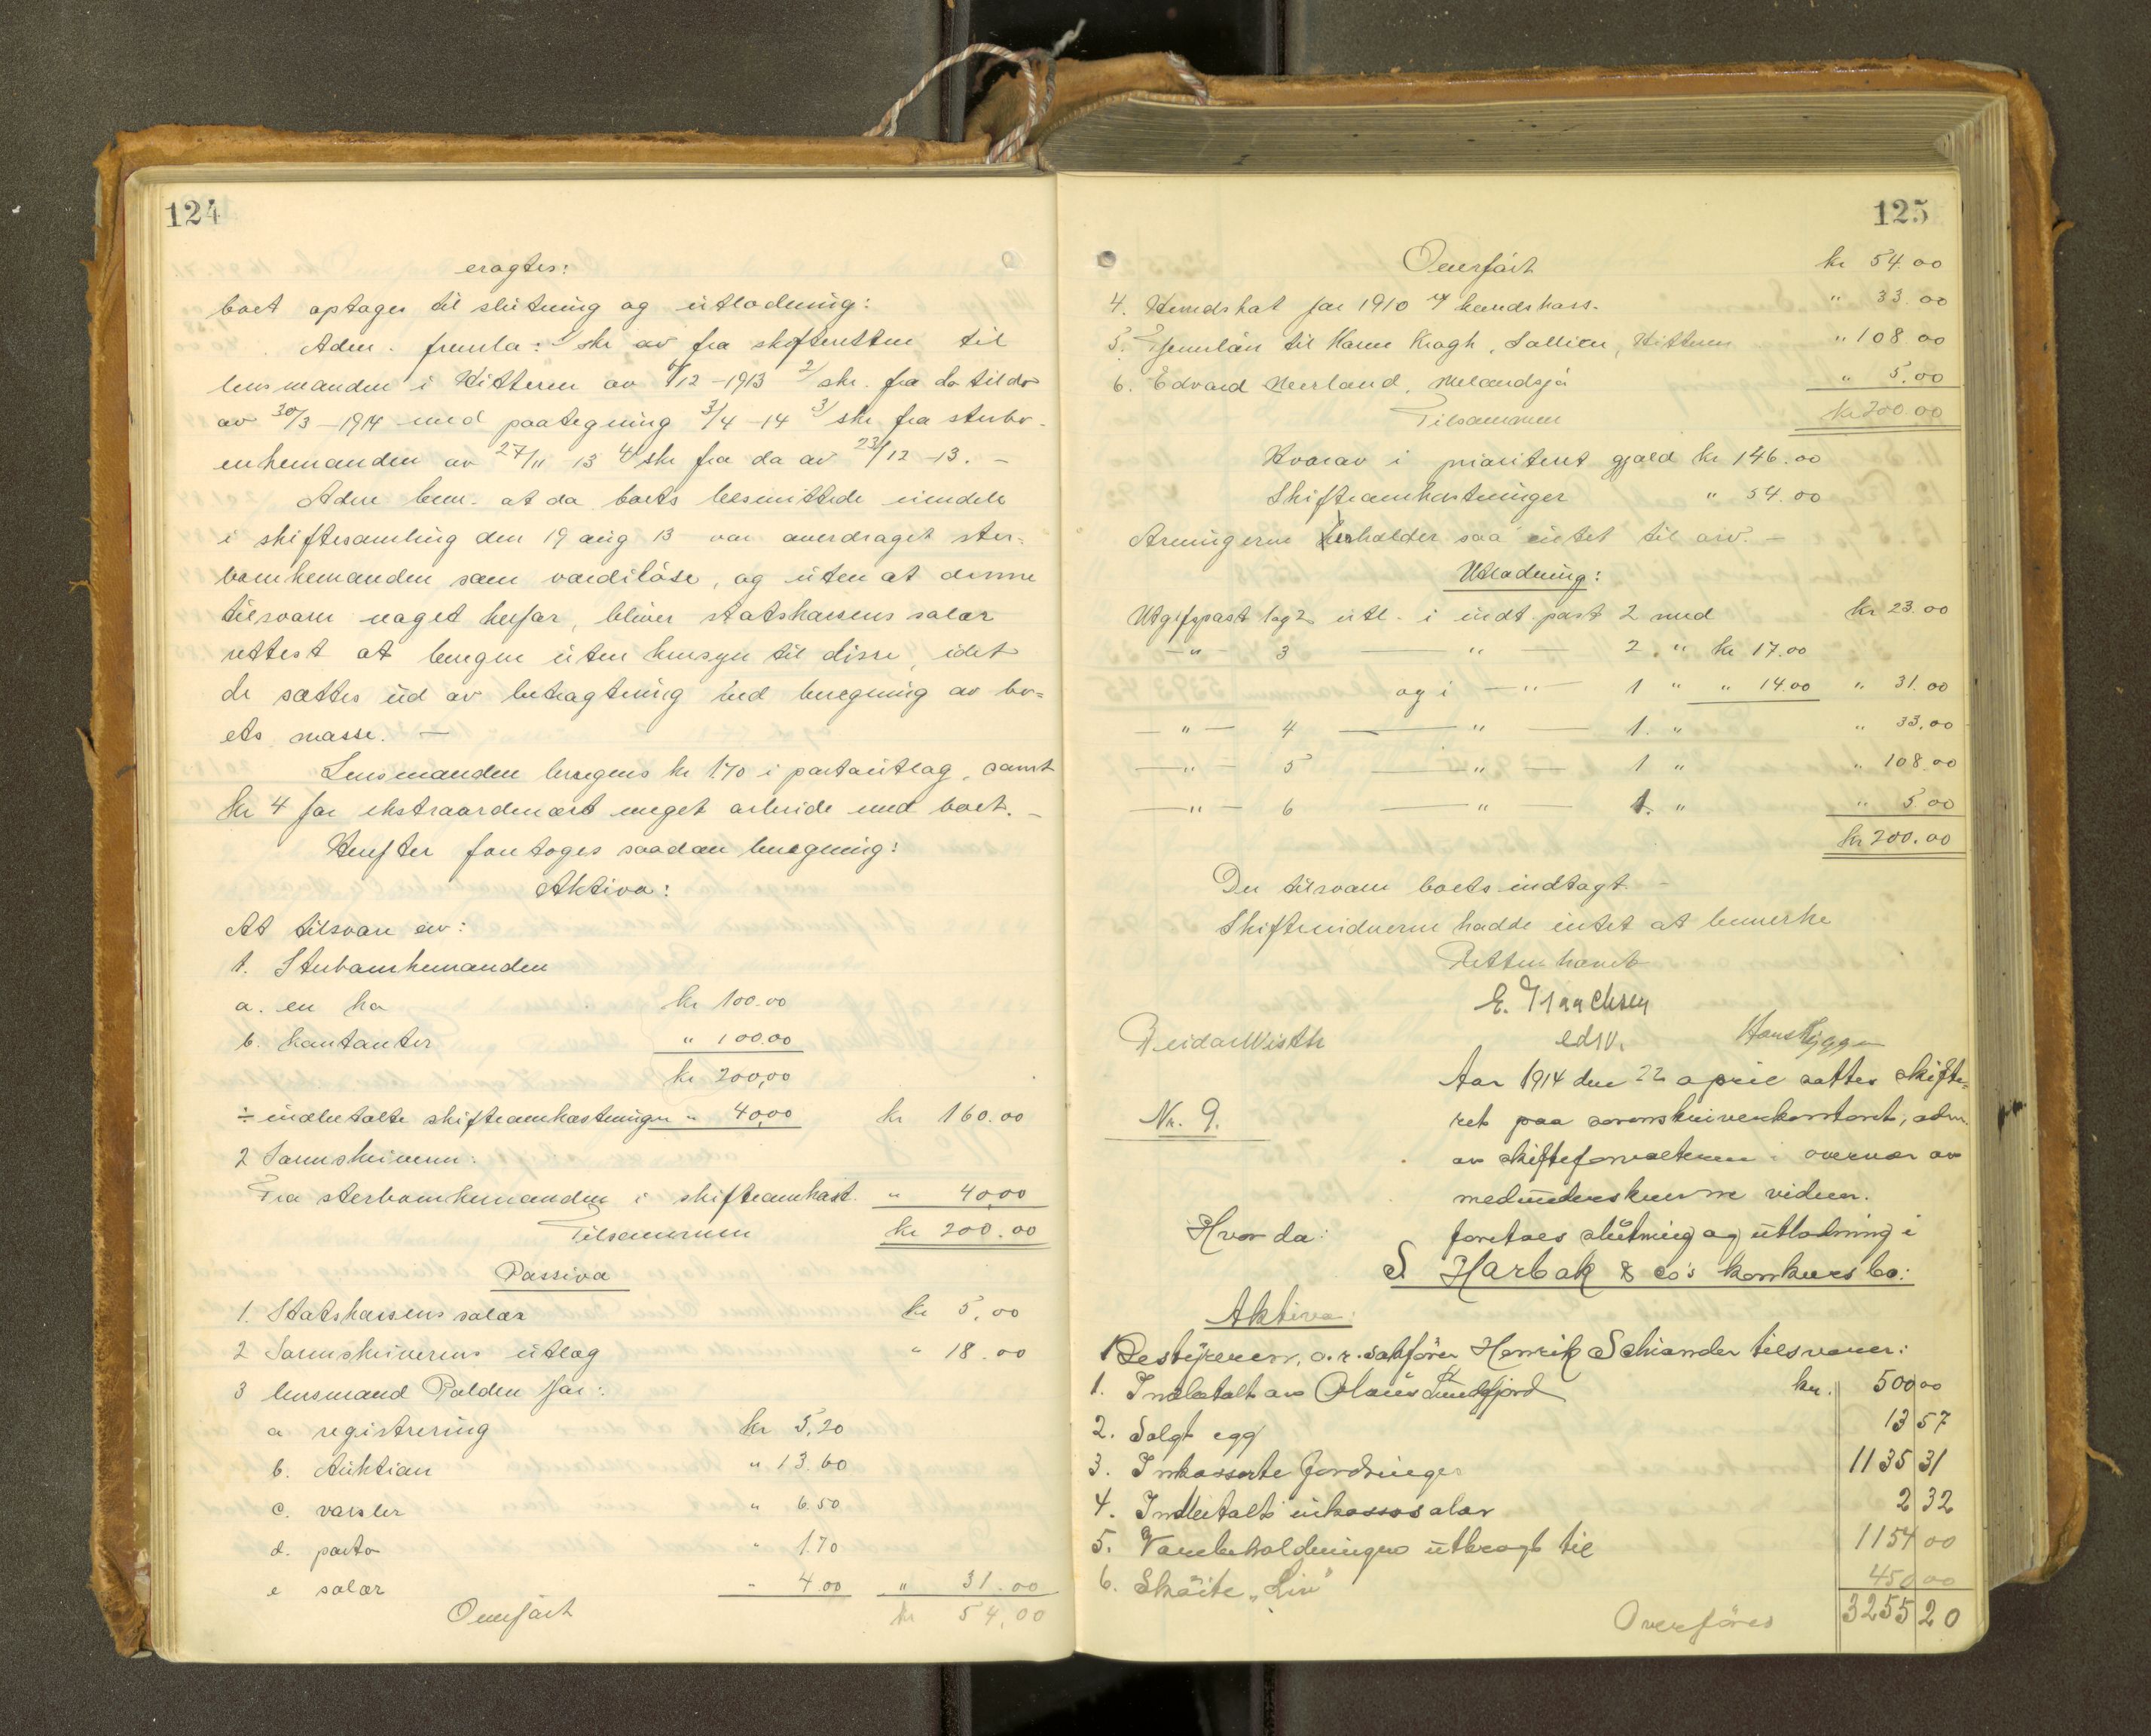 124
eragtes:
boet optages til slutning og utlodning:
Adm. fremla: 1/ skr av fra skifteretten til
lensmanden i Hitteren av /12-1913 2/ skr. fra do til do
av 30/3-1914 med paategning 3/4-14 3/ skr fra sterbo-
enkemanden av 27/11 13 4/ skr fra do av 23/12-13. -
Adm bem. at da boets besmittede eiendele
i skiftesamling den 19 aug 13 var overdraget ster-
boenkemanden som værdiløse, og uten at denne
tilsvarer noget herfor, bliver statskassens salær
rettest at beregne uten hensyn til disse, idet
de sættes ud av betragtning ved beregning av bo=
ets masse. —
Lensmanden beregnes kr 1.70 i portoutlæg, samt
kr 4 for ekstraordinært meget arbeide med boet. -
Herefter foretoges saadan beregning:
Aktiva:
At tilsvare av:
1. Sterboenkemanden
a. en ko kr 100.00
b. kontanter " 100.00
kr 200,00
÷ indbetalte skifteomkostninger " 40,00 kr 160.00
2 Sorenskriveren:
Fra sterboenkemanden i skifteomkost. " 40,00
Tilsammen kr 200.00
Passiva
1. Statskassens salær kr 5,00
2 Sorenskriverens utlæg " 18.00
3 lensmand Palden for:
a registrering kr 5,20
b. Auktion " 13.60
c. varsler " 6.50
d. porto " 1.70
e salær " 4.00 " 31.00
Overført kr 54,00
125
Overført kr 54.00
4. Herredskat for 1910 herredskass. " 33.00
5. Tjenerløn til Karen Kragh, Hitteren " 108.00
6. Edvard Meerland, Melandsjø " 5.00
Tilsammen kr 200.00
Hvorav i prioritert gjæld kr 146.00
Skifteomkostninger " 54.00
Arvingerne erholder saa intet til arv. -
Utlodning:
Utgiftspost 1 og 2 utl. i indt. post 2 med kr 23.00
—"— 3 —"— 2 " kr 17.00
og i —"— 1 " " 14.00 " 31.00
—"— 4 —"— 1. " " 33,00
—"— 5 —"— 1 " " 108.00
—"— 6 —"— 1. " " 5.00
kr 200.00
Der tilsvarer boets indtægt. -
Skiftevidnerne hadde intet at bemerke
Retten hævet
E. Isachsen
edsv.
Reidar Wisth Hans Nygge
Nr. 9.
Aar 1914 den 22 april sattes skifte-
ret paa sorenskriverkontoret, adm.
av skifteforvalteren i overvær av
medunderskrevne vidner.
Hvor da: foretoes slutning og utlodning i
S. Harbak & Co's konkursbo:
Aktiva:
Bestyreren, o.r. sakfører Henrik Schiander tilsvarer:
1. Indbetalt av Olaus Sundfjord kr. 500 00
2. Solgt egg 13 57
3. Inkasserte fordringer 1135 31
4. Indbetalt inkassosalær 2 32
5. Varebeholdningen utbragt til 1154 00
6. Skøite "Liv" 450 00
Overføres 3255 20